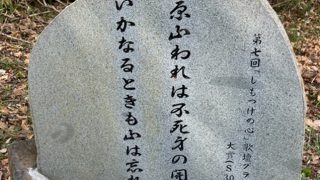 第七回『しもつけの心』歌壇グラ
大賞(S30
原ふわれは不死身の開
いかなるときも山は忘れ